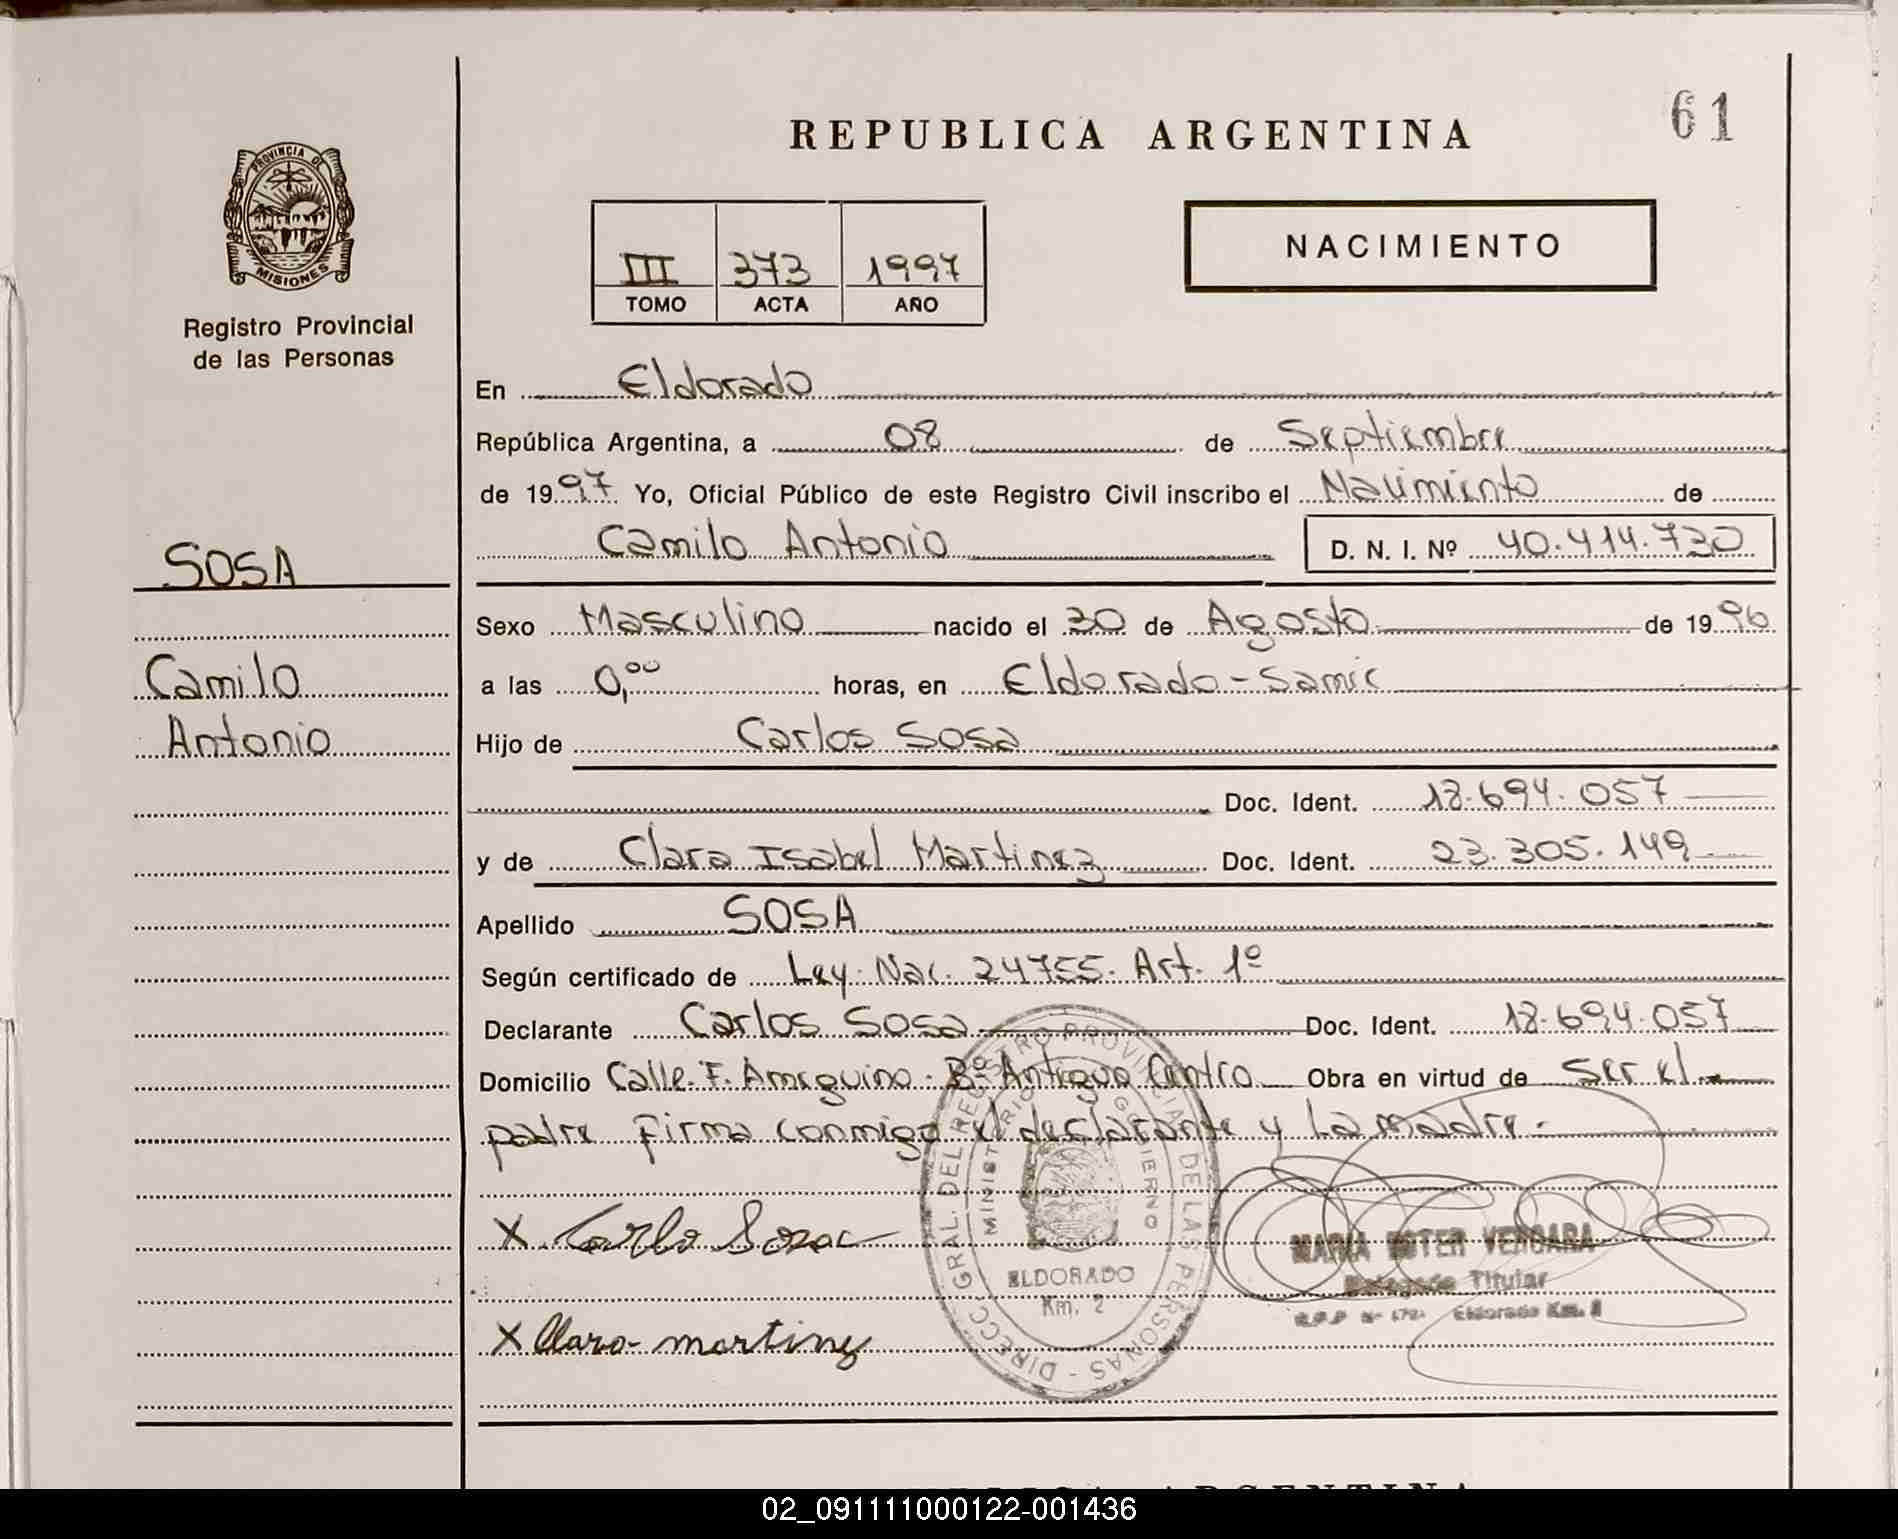 61
REPUBLICA ARGENTINA
PROVINCIA DE
MISIONES
Registro Provincial
de las Personas
III 373 1997
TOMO ACTA AÑO
NACIMIENTO
En Eldorado
República Argentina, a 08 de Septiembre
de 1997 Yo, Oficial Público de este Registro Civil inscribo el Nacimiento de
Camilo Antonio D. N. I. Nº 40.414.730
SOSA
Sexo Masculino nacido el 30 de Agosto de 1996
Camilo
a las 0,00 horas, en Eldorado - Samic
Antonio
Hijo de Carlos Sosa
Doc. Ident. 18.694.057
y de Clara Isabel Martinez Doc. Ident. 23.305.149
Apellido SOSA
Según certificado de Ley. Nac. 24755. Art. 1º
Declarante Carlos Sosa Doc. Ident. 18.694.057
Domicilio Calle. F. Ameguino. Bº Antiguo Centro Obra en virtud de ser el
padre firma conmigo el declarante y La madre.-
X Carlo Sosa
X Clara martinez
DIRECC. GRAL. DEL REGISTRO PROVINCIAL DE LAS PERSONAS -
MINISTERIO GOBIERNO
ELDORADO
Km. 2
MARIA ESTER VERGARA
Delegada Titular
Eldorado Km. 2
02_091111000122-001436